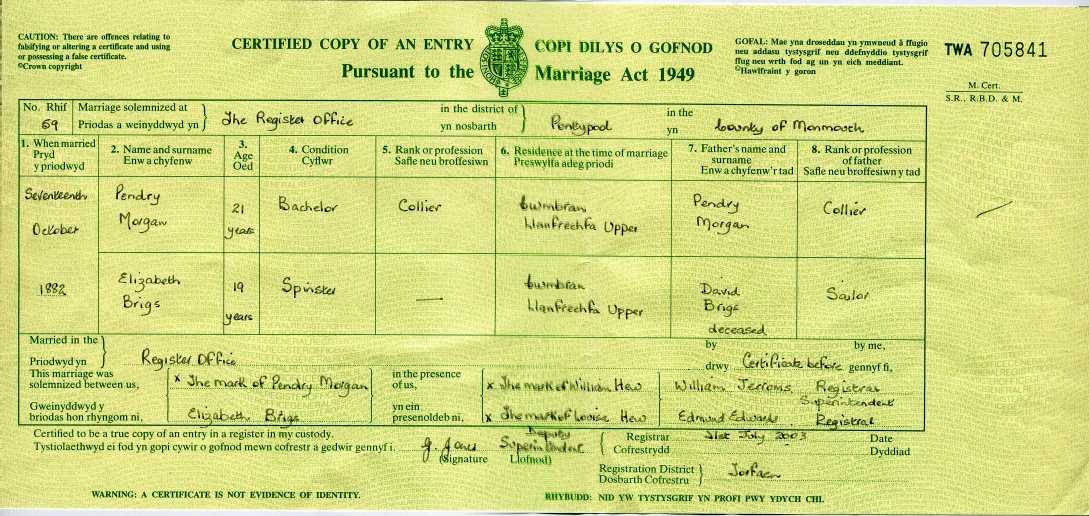 CAUTION: There are offences relating to
falsifying or altering a certificate and using
or possessing a false certificate.
©Crown copyright
CERTIFIED COPY OF AN ENTRY
Pursuant to the
COPI DILYS O GOFNOD
Marriage Act 1949
GOFAL: Mae yna droseddau yn ymwneud â ffugio
neu addasu tystysgrif neu ddefnyddio tystysgrif
ffug neu wrth fod ag un yn eich meddiant.
©Hawlfraint y goron
TWA 705841
M. Cert.
S.R., R.B.D. & M.
No. Rhif
69
Marriage solemnized at
Priodas a weinyddwyd yn
The Register Office
in the district of
yn nosbarth
Pontypool
in the
yn
County of Monmouth
1. When married
Pryd
y priodwyd
2. Name and surname
Enw a chyfenw
3.
Age
Oed
4. Condition
Cyflwr
5. Rank or profession
Safle neu broffesiwn
6. Residence at the time of marriage
Preswylfa adeg priodi
7. Father's name and
surname
Enw a chyfenw'r tad
8. Rank or profession
of father
Safle neu broffesiwn y tad
Seventeenth
October
1882
Pendry
Morgan
21
years
Bachelor
Collier
Cwmbran
Llanfrechfa Upper
Pendry
Morgan
Collier
Elizabeth
Brigs
19
years
Spinster
Cwmbran
Llanfrechfa Upper
David
Brigs
deceased
Sailor
Married in the
Priodwyd yn
Register Office
by
drwy
Certificate before
by me,
gennyf fi,
This marriage was
solemnized between us,
Gweinyddwyd y
briodas hon rhyngom ni,
x The mark of Pendry Morgan
Elizabeth Brigs
in the presence
of us,
yn ein
presenoldeb ni,
x The mark of William Hew
x The mark of Louisa Hew
William Jerroms Registrar
Edmund Edwards Superintendent
Registrar
Certified to be a true copy of an entry in a register in my custody.
Tystiolaethwyd ei fod yn gopi cywir o gofnod mewn cofrestr a gedwir gennyf i.
G. Jones
(Signature
Deputy
Superintendent
Llofnod)
Registrar
Cofrestrydd
31st July 2003
Date
Dyddiad
Registration District
Dosbarth Cofrestru
Torfaen
WARNING: A CERTIFICATE IS NOT EVIDENCE OF IDENTITY.
RHYBUDD: NID YW TYSTYSGRIF YN PROFI PWY YDYCH CHI.